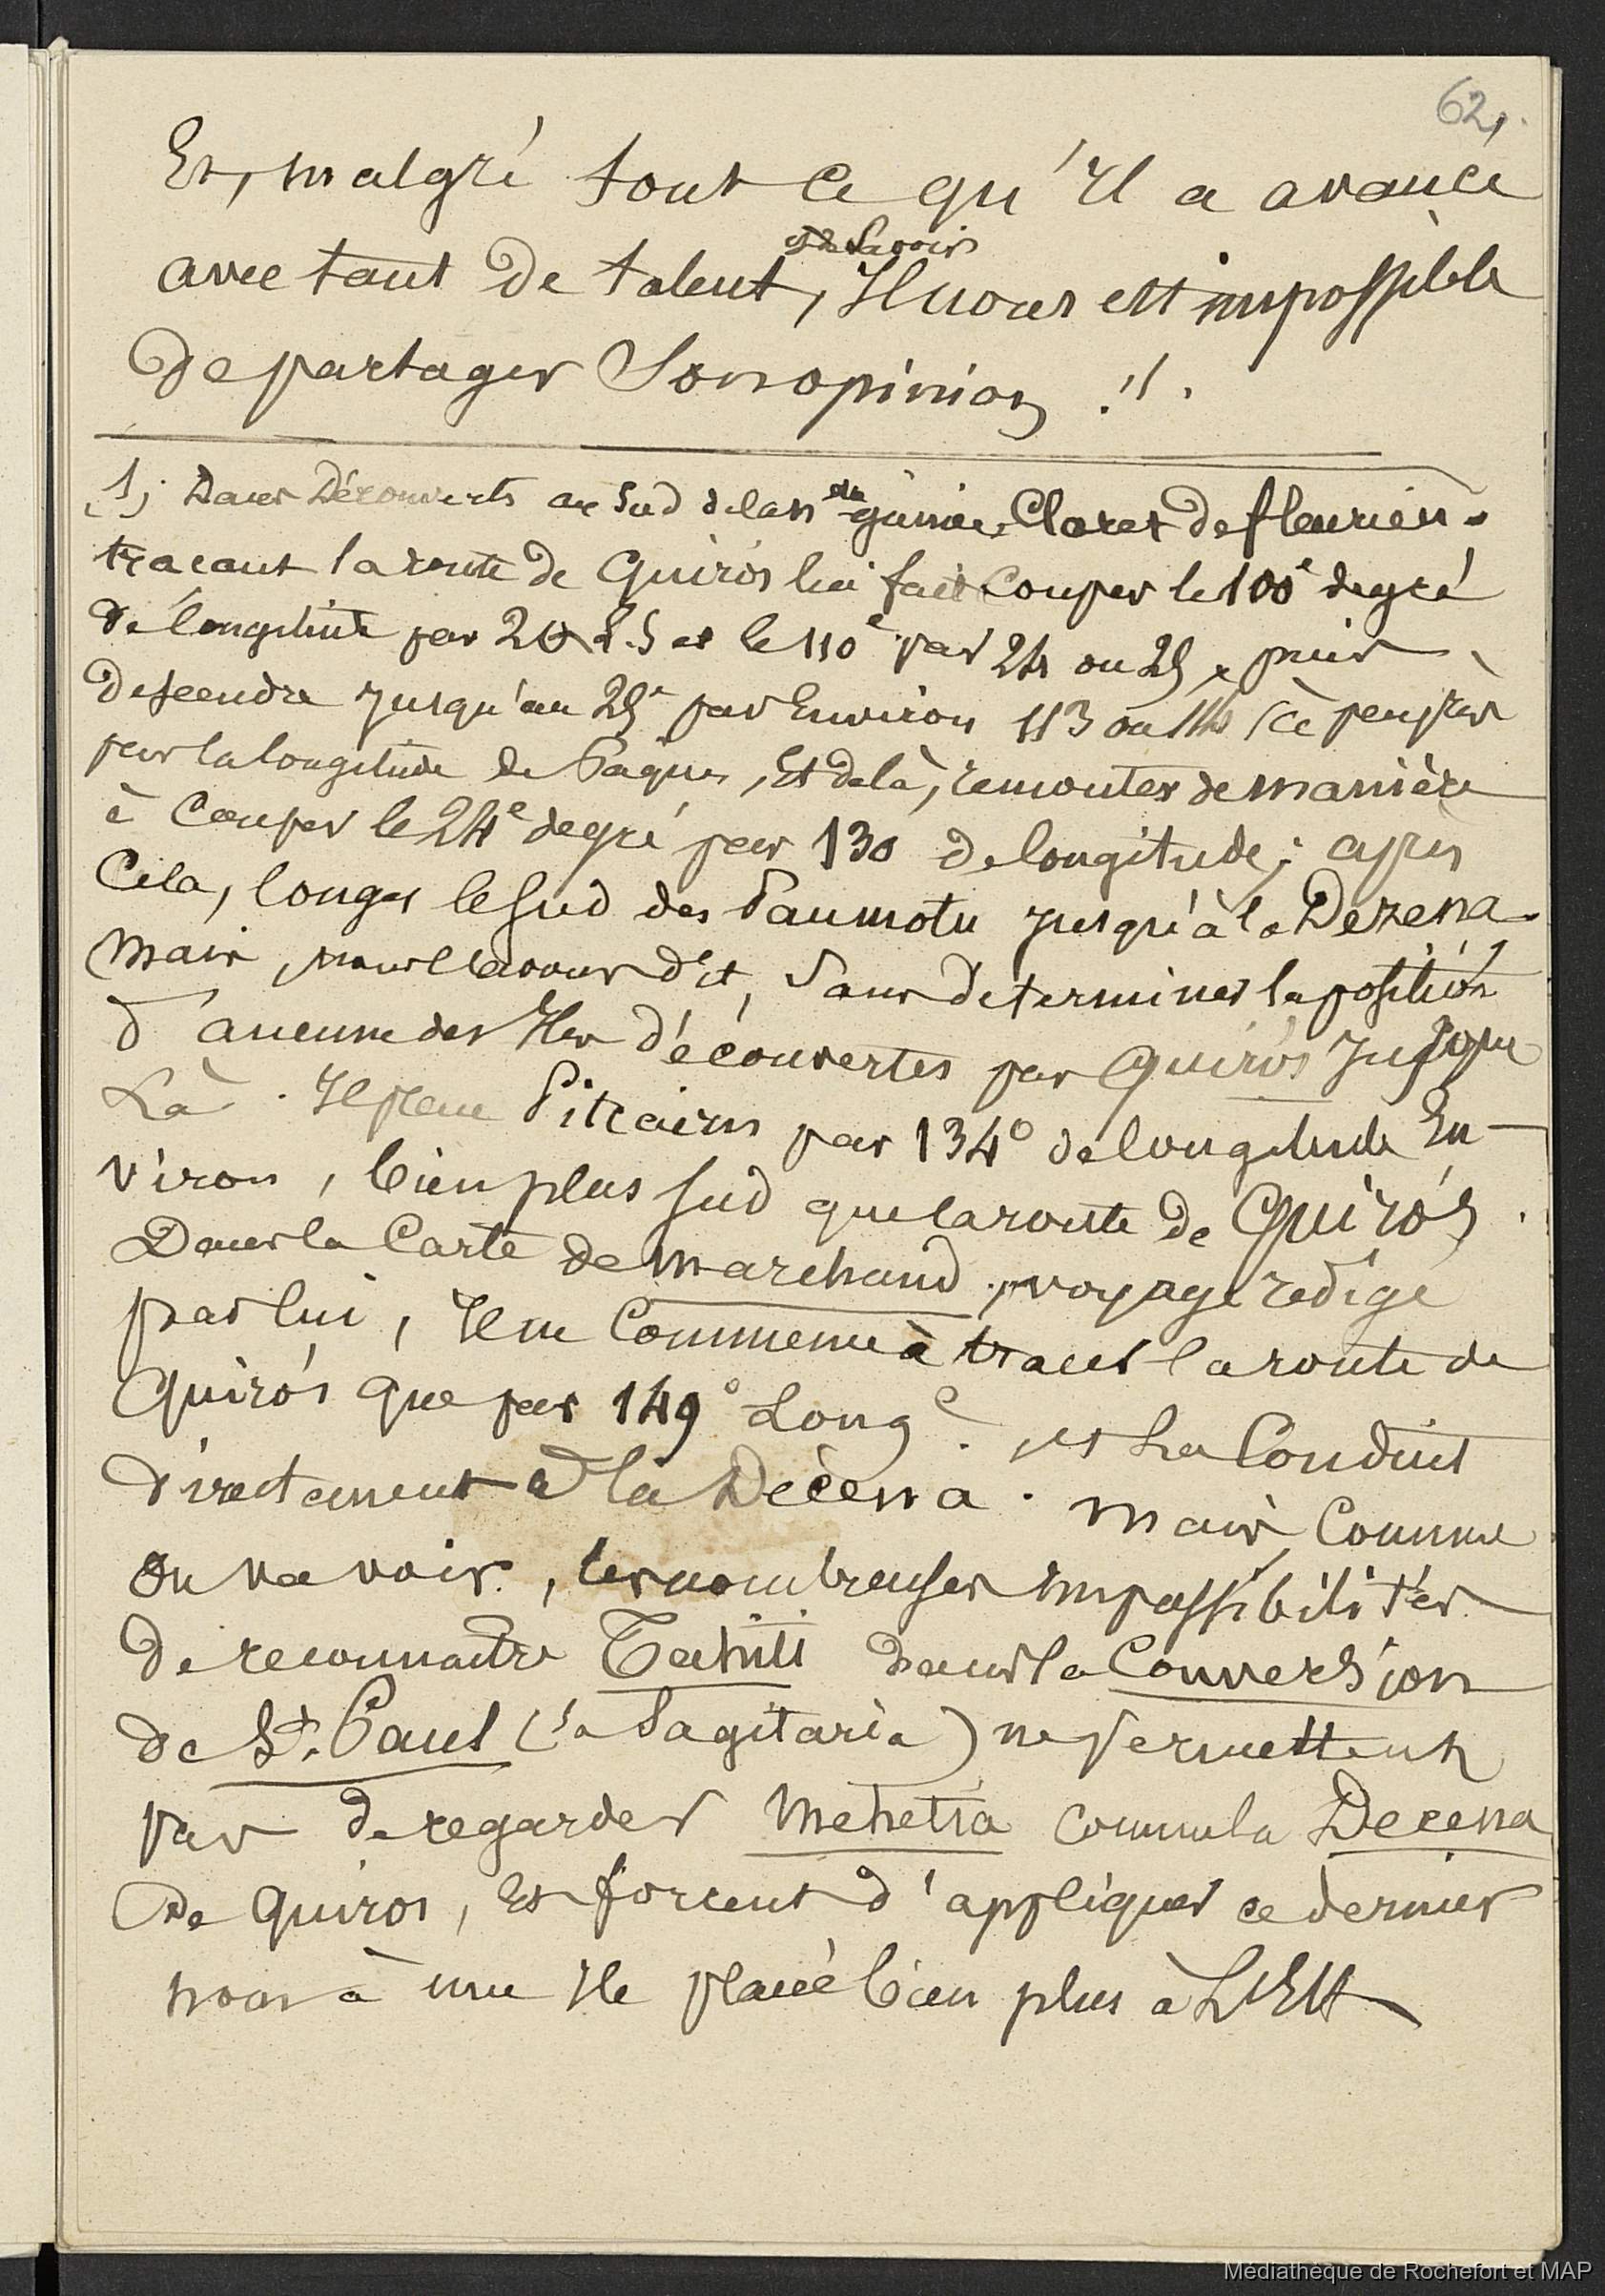 62,
Et, malgré tout ce qu'Il a avancé
et de Savoir
avec tant de talent, Il nous est impossible
de partager Son opinion !!.
1; Dans Découverts au Sud de la N lle guinée, Claret de fleurieu.
traçant la route de Quirós lui fait Couper le 100e degré
de longitude par 2 S et le 110e par 24 ou 25, puis
descendre jusqu'au 25e par Environ 113 ou (à peu près
par la longitude de Pâques, Et de là, remonter de manière
à Couper le 24e degré par 130 de longitude; après
Cela, longer le Sud des Paumotu jusqu'à la Dezena.
Mais, nous l'avons dit, Sans determiner la position
d'aucune des Iles découvertes par Quirós jusque
Là. Il place Pitcairn par 134° de longitude En-
viron, bien plus Sud que la route de Quirós.
Dans la Carte de Marchand, voyage redigé
par lui, Il ne Commence à tracer la route de
Quirós que par 149° Long e. et La Conduit
directement à la Decena. Mais, Comme
On va voir, les nombreuses impossibilités
de reconnaitre Tahiti dans la Conversion
de St. Paul (la Sagitaria) ne permettent
pas de regarder Mehetia comme la Decena
De Quiros, Et forcent d'appliquer ce dernier
nom à une Ile placée bien plus à L'Est
Médiathèque de Rochefort et MAP